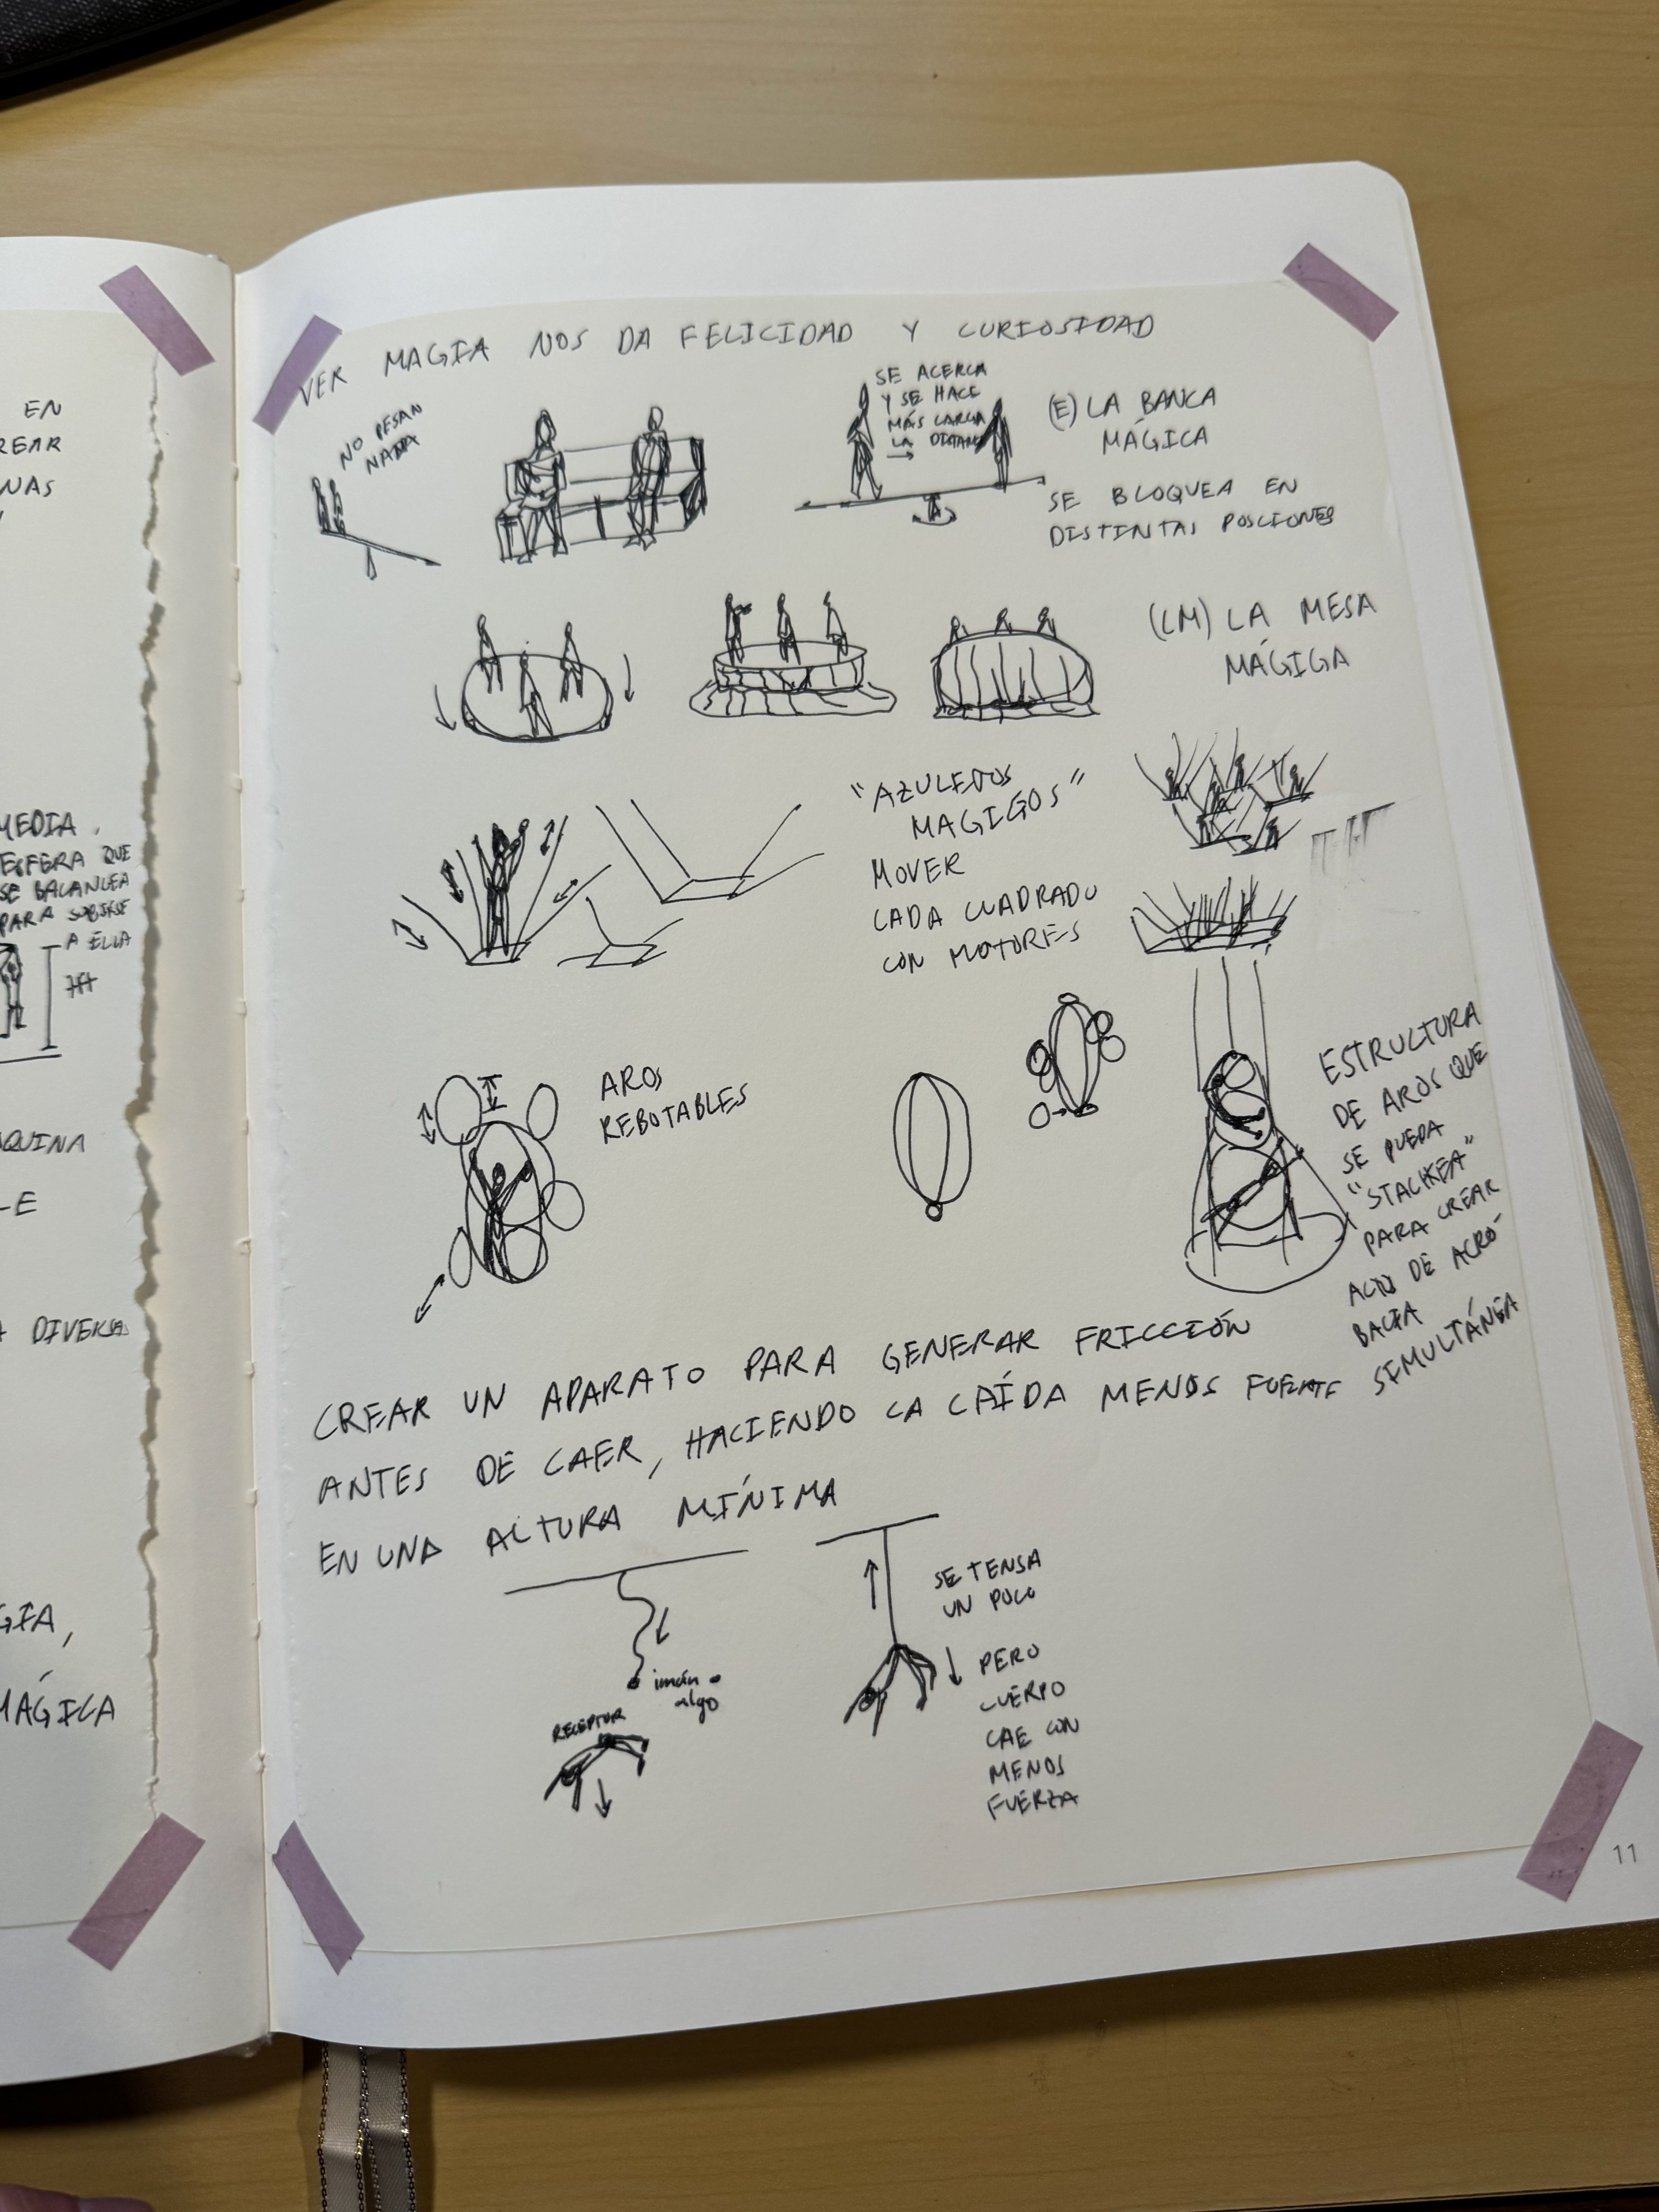 EN
REAR
NAS
MEDIA
ESFERA QUE
SE BALANCEA
PARA SUBIRSE
A ELLA
7ft
QUINA
-E
DIVERSA
GIA,
MÁGICA
VER MAGIA NOS DA FELICIDAD Y CURIOSIDAD
NO PESAN
NADA
SE ACERCA
Y SE HACE
MÁS LARGA
LA
(E) LA BANCA
MÁGICA
SE BLOQUEA EN
DISTINTAS POSCIONES
(LM) LA MESA
MÁGIGA
"AZULEJOS
MAGIGOS"
MOVER
CADA CUADRADO
CON MOTORES
AROS
REBOTABLES
ESTRUCTURA
DE AROS QUE
SE PUEDA
"STACKEA"
PARA CREAR
ACTO DE ACRO-
BACIA
SIMULTÁNEA
CREAR UN APARATO PARA GENERAR FRICCIÓN
ANTES DE CAER, HACIENDO LA CAÍDA MENOS FUERTE
EN UNA ALTURA MÍNIMA
imán o
algo
RECEPTOR
SE TENSA
UN POCO
PERO
CUERPO
CAE CON
MENOS
FUERZA
11